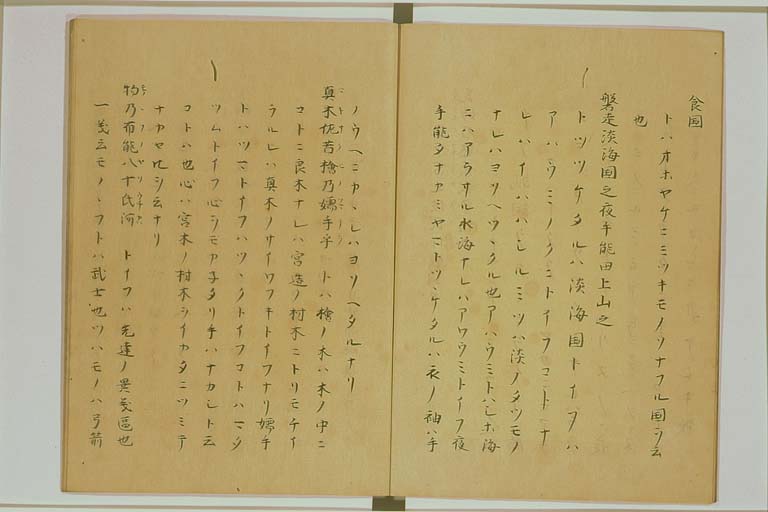 食国
トハオホヤケニミツキモノソナフル国ヲ云
也
磐走淡海国之衣手能田上山之
トツヅケタルハ淡海国トイフハ
アハウミノクニトイフコトナ
レハイハハシルミツハ淡ノタツモノ
ナレハヨソヘツヽクル也アハウミトハシホ海
ニハアラサル水海ナレハアワウミトイフ衣
手能タナカミヤマトツヽケタルハ衣ノ袖ハ手
ノウヘニカヽレハヨソヘタルナリ
真木佐苦檜乃嬬手乎 トハ檜ノ木ハ木ノ中ニ
コトニ良木ナレハ宮造ノ材木ニトリモチイ
ラルレハ真木ノサイワフキトイフナリ嬬手
トハツマトイフハツヽクトイフコトハマタ
ツムトイフ心シモアルタリ手ハナカシト云
コトハ也心ハ宮木ノ材木シイカタニツミテ
ナカセルシ云ナリ
物乃布能八十氏河 トイフハ先達ノ異義區也
一義云モノヽフトハ武士也ツハモノハ弓箭